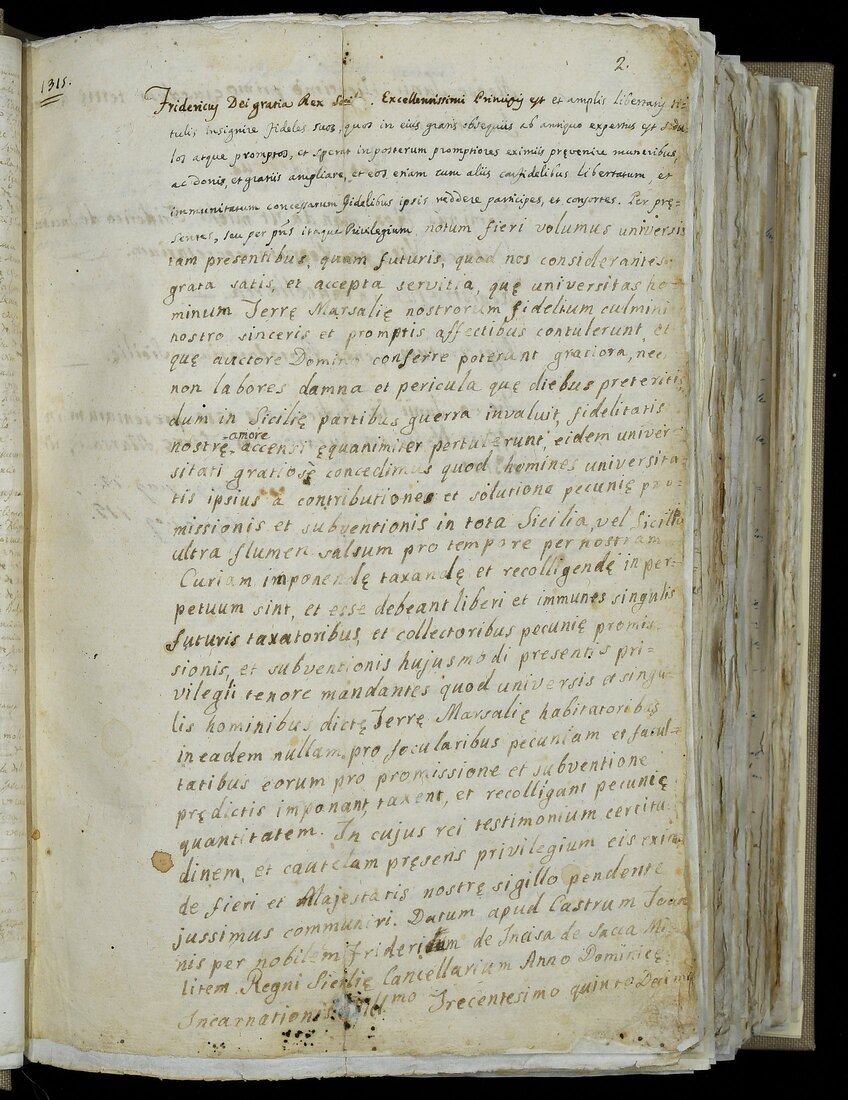 1315.
2.
Fridericus Dei gratia Rex . Excellentissimi Principis est et amplis libertatis ti-
tulis insignire fideles suos, quos in eius gratis obsequiis ab antiquo expertus est sedu-
los atque promptos, et sperat in posterum promptiores eximiis prevenire muneribus,
ac donis, et gratiis ampliare, et eos etiam cum aliis confidelibus libertatum, et
immunitatum concessarum fidelibus ipsis reddere participes, et consortes. Per prę=
sentes, seu per pns itaque Privilegium, notum fieri volumus universis
tam presentibus, quam futuris, quod nos considerantes
grata satis, et accepta servitia, quę universitas ho=
minum Terrę Marsalię nostrorum fidelium culmini
nostro sinceris et promptis affectibus contulerunt, et
quę auctore Domino conferre poterunt gratiora, nec
non labores damna et pericula quę diebus preteritis,
dum in Sicilię partibus guerra invaluit, fidelitatis
nostrę amore accensi ęquanimiter pertulerunt, eidem univer=
sitati gratiosè concedimus quod homines universita=
tis ipsius à contributione et solutione pecunię pro=
missionis et subventionis in tota Sicilia, vel Sicilia
ultra flumen salsum pro tempore per nostram
Curiam imponendę taxandę et recolligendę in per=
petuum sint, et esse debeant liberi et immunes singulis
futuris taxatoribus, et collectoribus pecunię promis=
sionis, et subventionis hujusmodi presentis pri=
vilegii tenore mandantes quod universis et singu=
lis hominibus dictę Terrę Marsalię habitatoribus
in eadem nullam pro focularibus pecuniam et facul=
tatibus eorum pro promissione et subventione
prędictis imponant, taxent, et recolligant pecunię
quantitatem. In cujus rei testimonium certitu
dinem, et cautelam pręsens privilegium eis exin
de fieri et Majestatis nostrę sigillo pendente
jussimus communiri. Datum apud Castrum Joan
nis per nobilem Fridericum de Incisa de Sacca Mi=
litem Regni Sicilię Cancellarium Anno Dominicę
Incarnationis Mill.mo Trecentesimo quinto Decimo